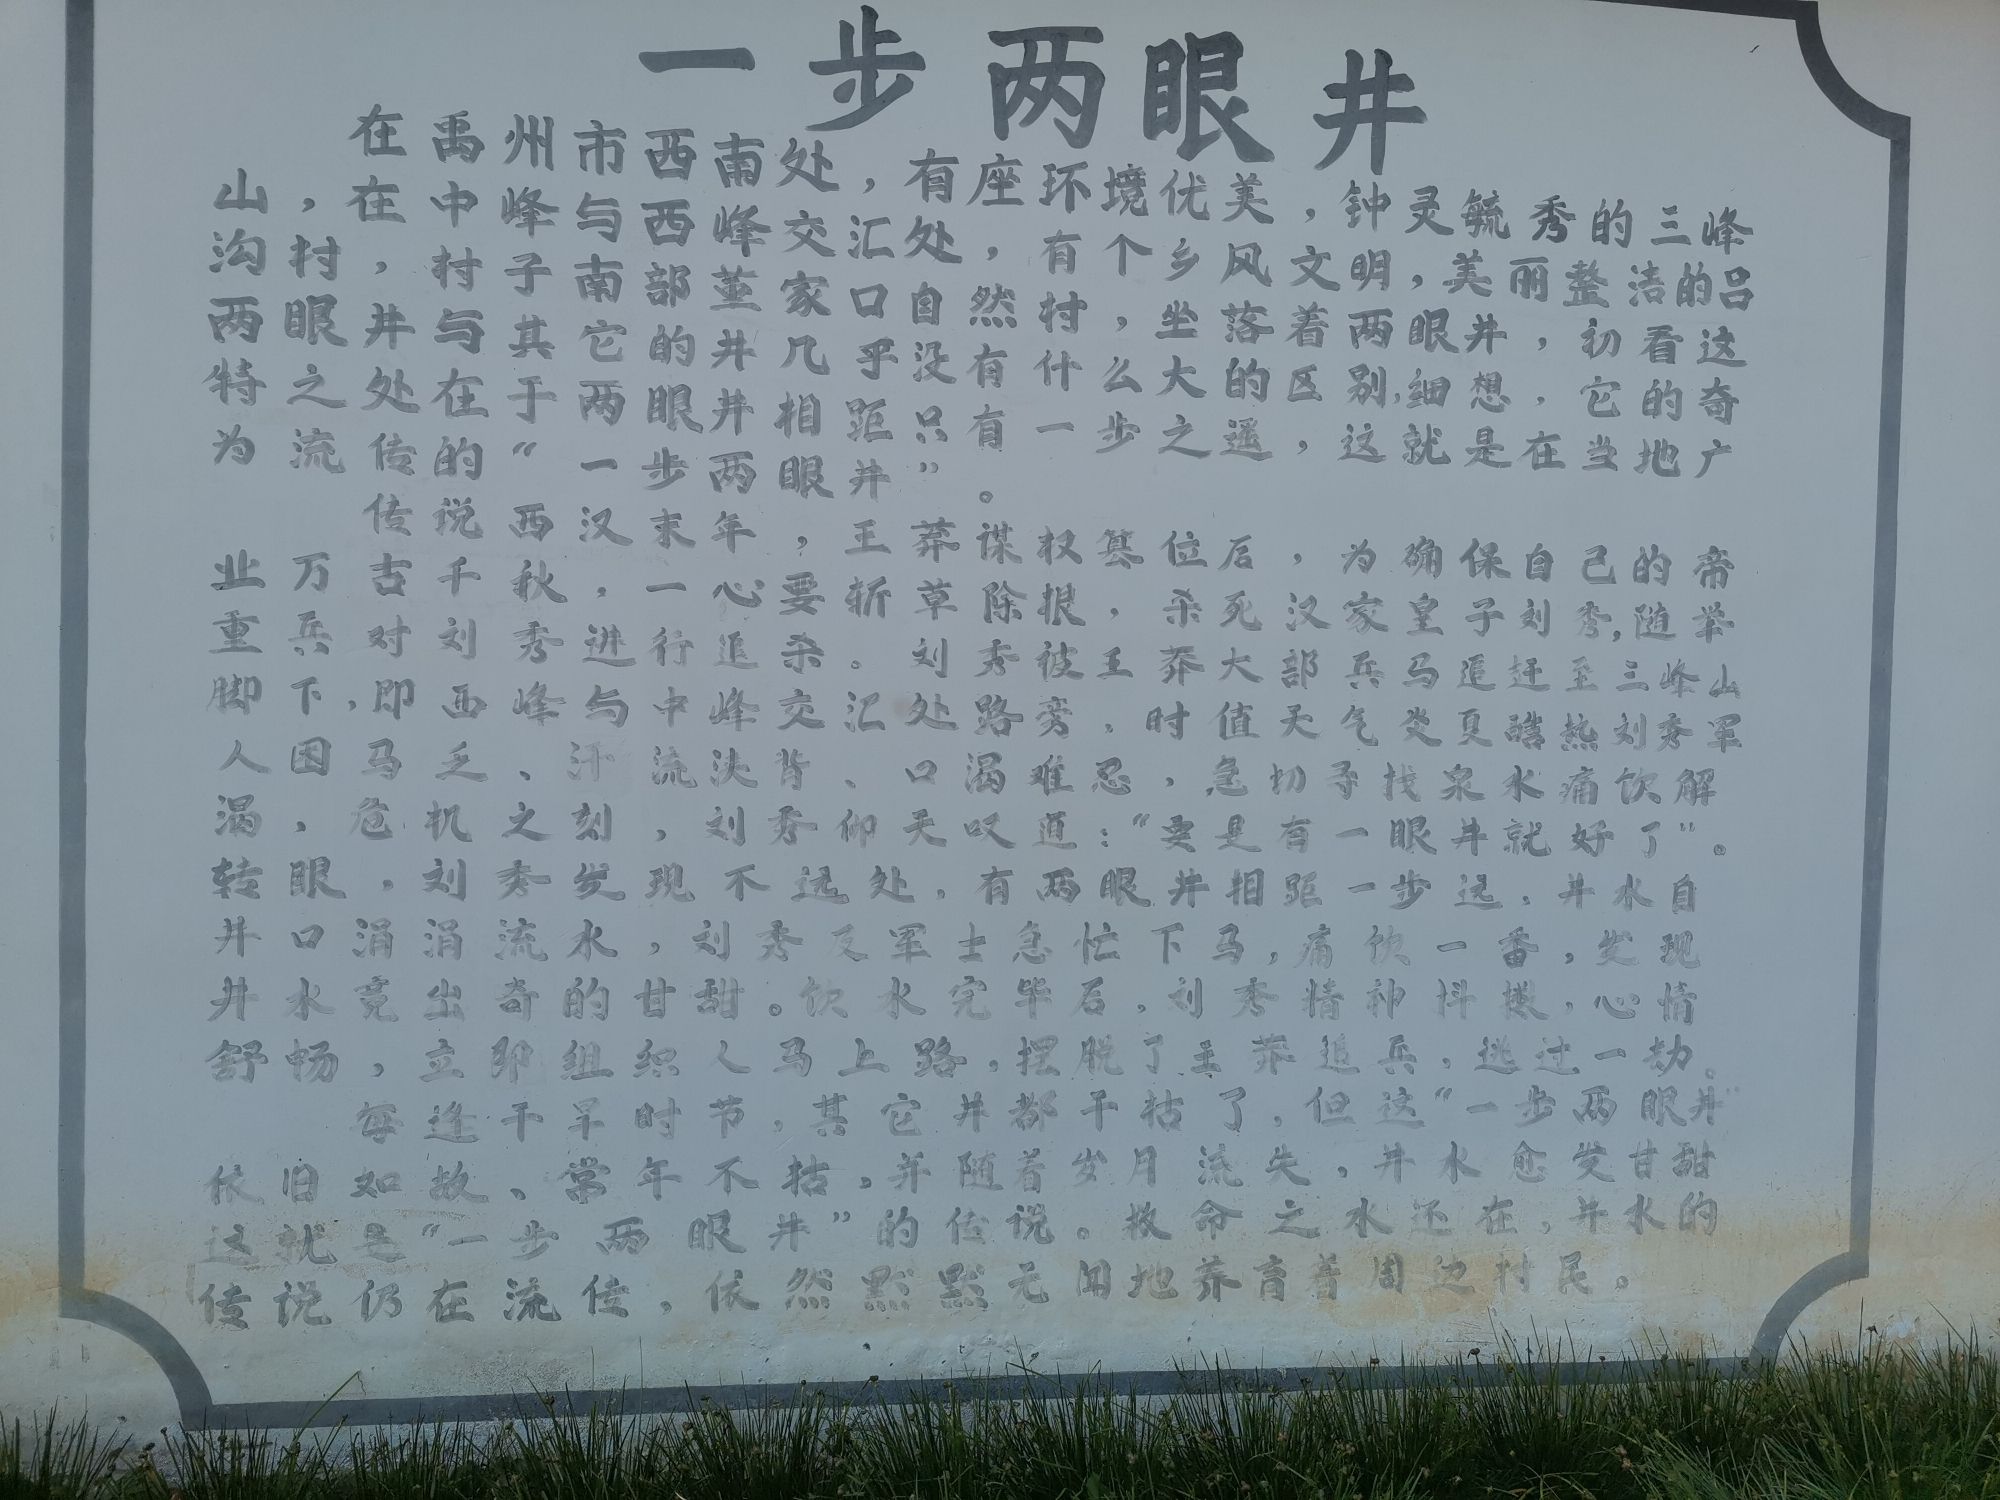 一步两眼井
在禹州市西南处，有座环境优美，钟灵毓秀的三峰
山，在中峰与西峰交汇处，有个乡风文明，美丽整洁的吕
沟村，村子南部董家口自然村，坐落着两眼井，初看这
两眼井与其它的井几乎没有什么大的区别，细想，它的奇
特之处在于两眼井相距只有一步之遥，这就是在当地广
为流传的“一步两眼井”。
传说西汉末年，王莽谋权篡位后，为确保自己的帝
业万古千秋，一心要斩草除根，杀死汉家皇子刘秀，随举
重兵对刘秀进行追杀。刘秀被王莽大部兵马追赶至三峰山
脚下，即西峰与中峰交汇处路旁，时值天气炎夏酷热刘秀军
人困马乏、汗流浃背、口渴难忍，急切寻找泉水痛饮解
渴，危机之刻，刘秀仰天叹道：“要是有一眼井就好了”。
转眼，刘秀发现不远处，有两眼井相距一步远，井水自
井口涓涓流水，刘秀及军士急忙下马，痛饮一番，发现
井水竟出奇的甘甜。饮水完毕后，刘秀精神抖擞，心情
舒畅，立即组织人马上路，摆脱了王莽追兵，逃过一劫。
每逢干旱时节，其它井都干枯了，但这“一步两眼井”
依旧如故、常年不枯，并随着岁月流失，井水愈发甘甜
这就是“一步两眼井”的传说。救命之水还在，井水的
传说仍在流传，依然默默无闻地养育着周边村民。